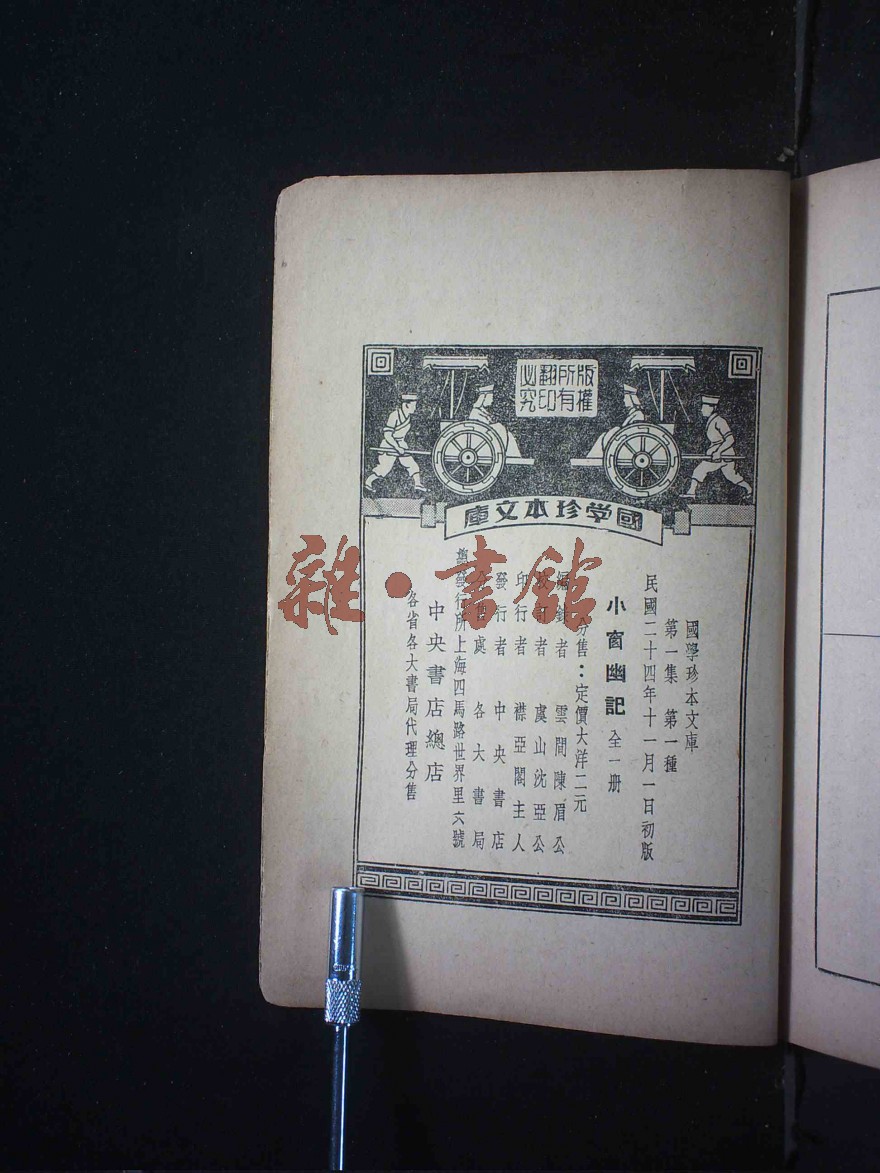 版權所有翻印必究
國学珍本文庫
國學珍本文庫
第一集 第一種
民國二十四年十一月一日初版
小窗幽記 全一册
分售：定價大洋二元
編錄者 雲間陳眉公
訂者 虞山沈亞公
印行者 襟亞閣主人
發行者 中央書店
分售處 各大書局
總發行所上海四馬路世界里六號
中央書店總店
各省各大書局代理分售
雜·書館